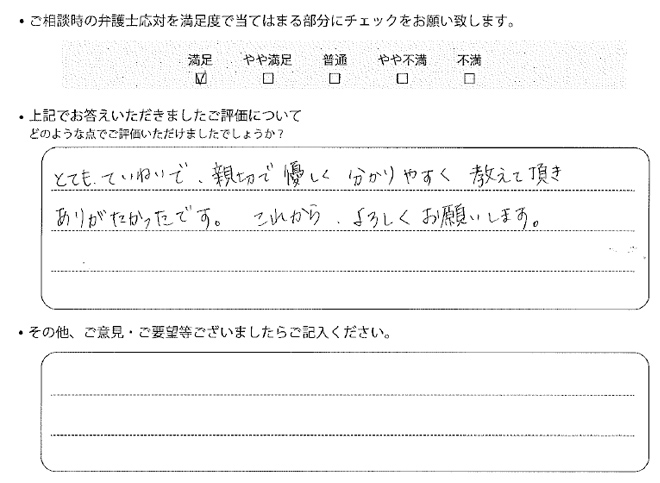 ・ご相談時の弁護士応対を満足度で当てはまる部分にチェックをお願い致します。
満足 やや満足 普通 やや不満 不満
☑ □ □ □ □
・上記でお答えいただきましたご評価について
どのような点でご評価いただけましたでしょうか?
とても、ていねいで、親切で優しく 分かりやすく 教えて頂き
ありがたかったです。 これから、よろしくお願いします。
・その他、ご意見・ご要望等ございましたらご記入ください。